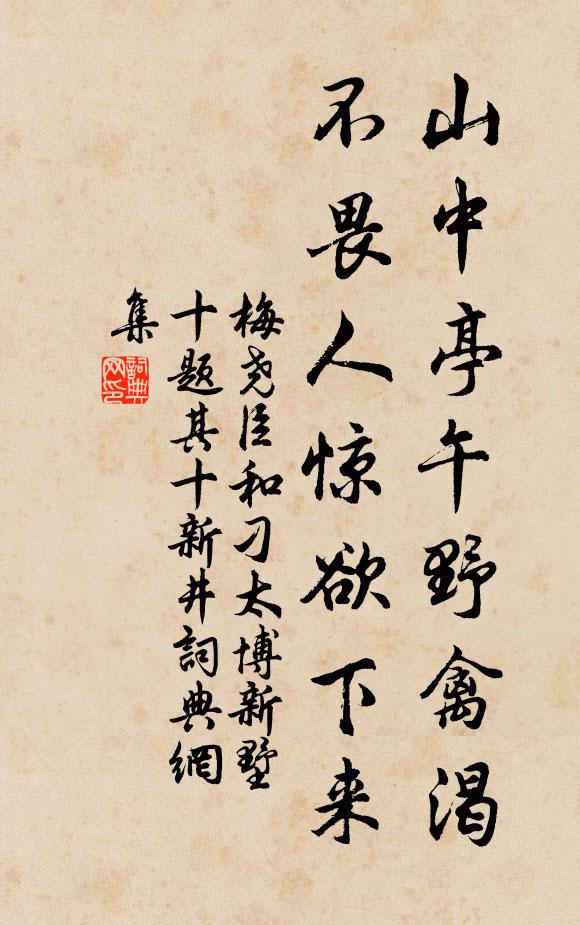 山中亭午野禽渴
不畏人惊欲下来
梅尧臣和刁太博新墅
十题其十新井詞典網
集
詞典
网印